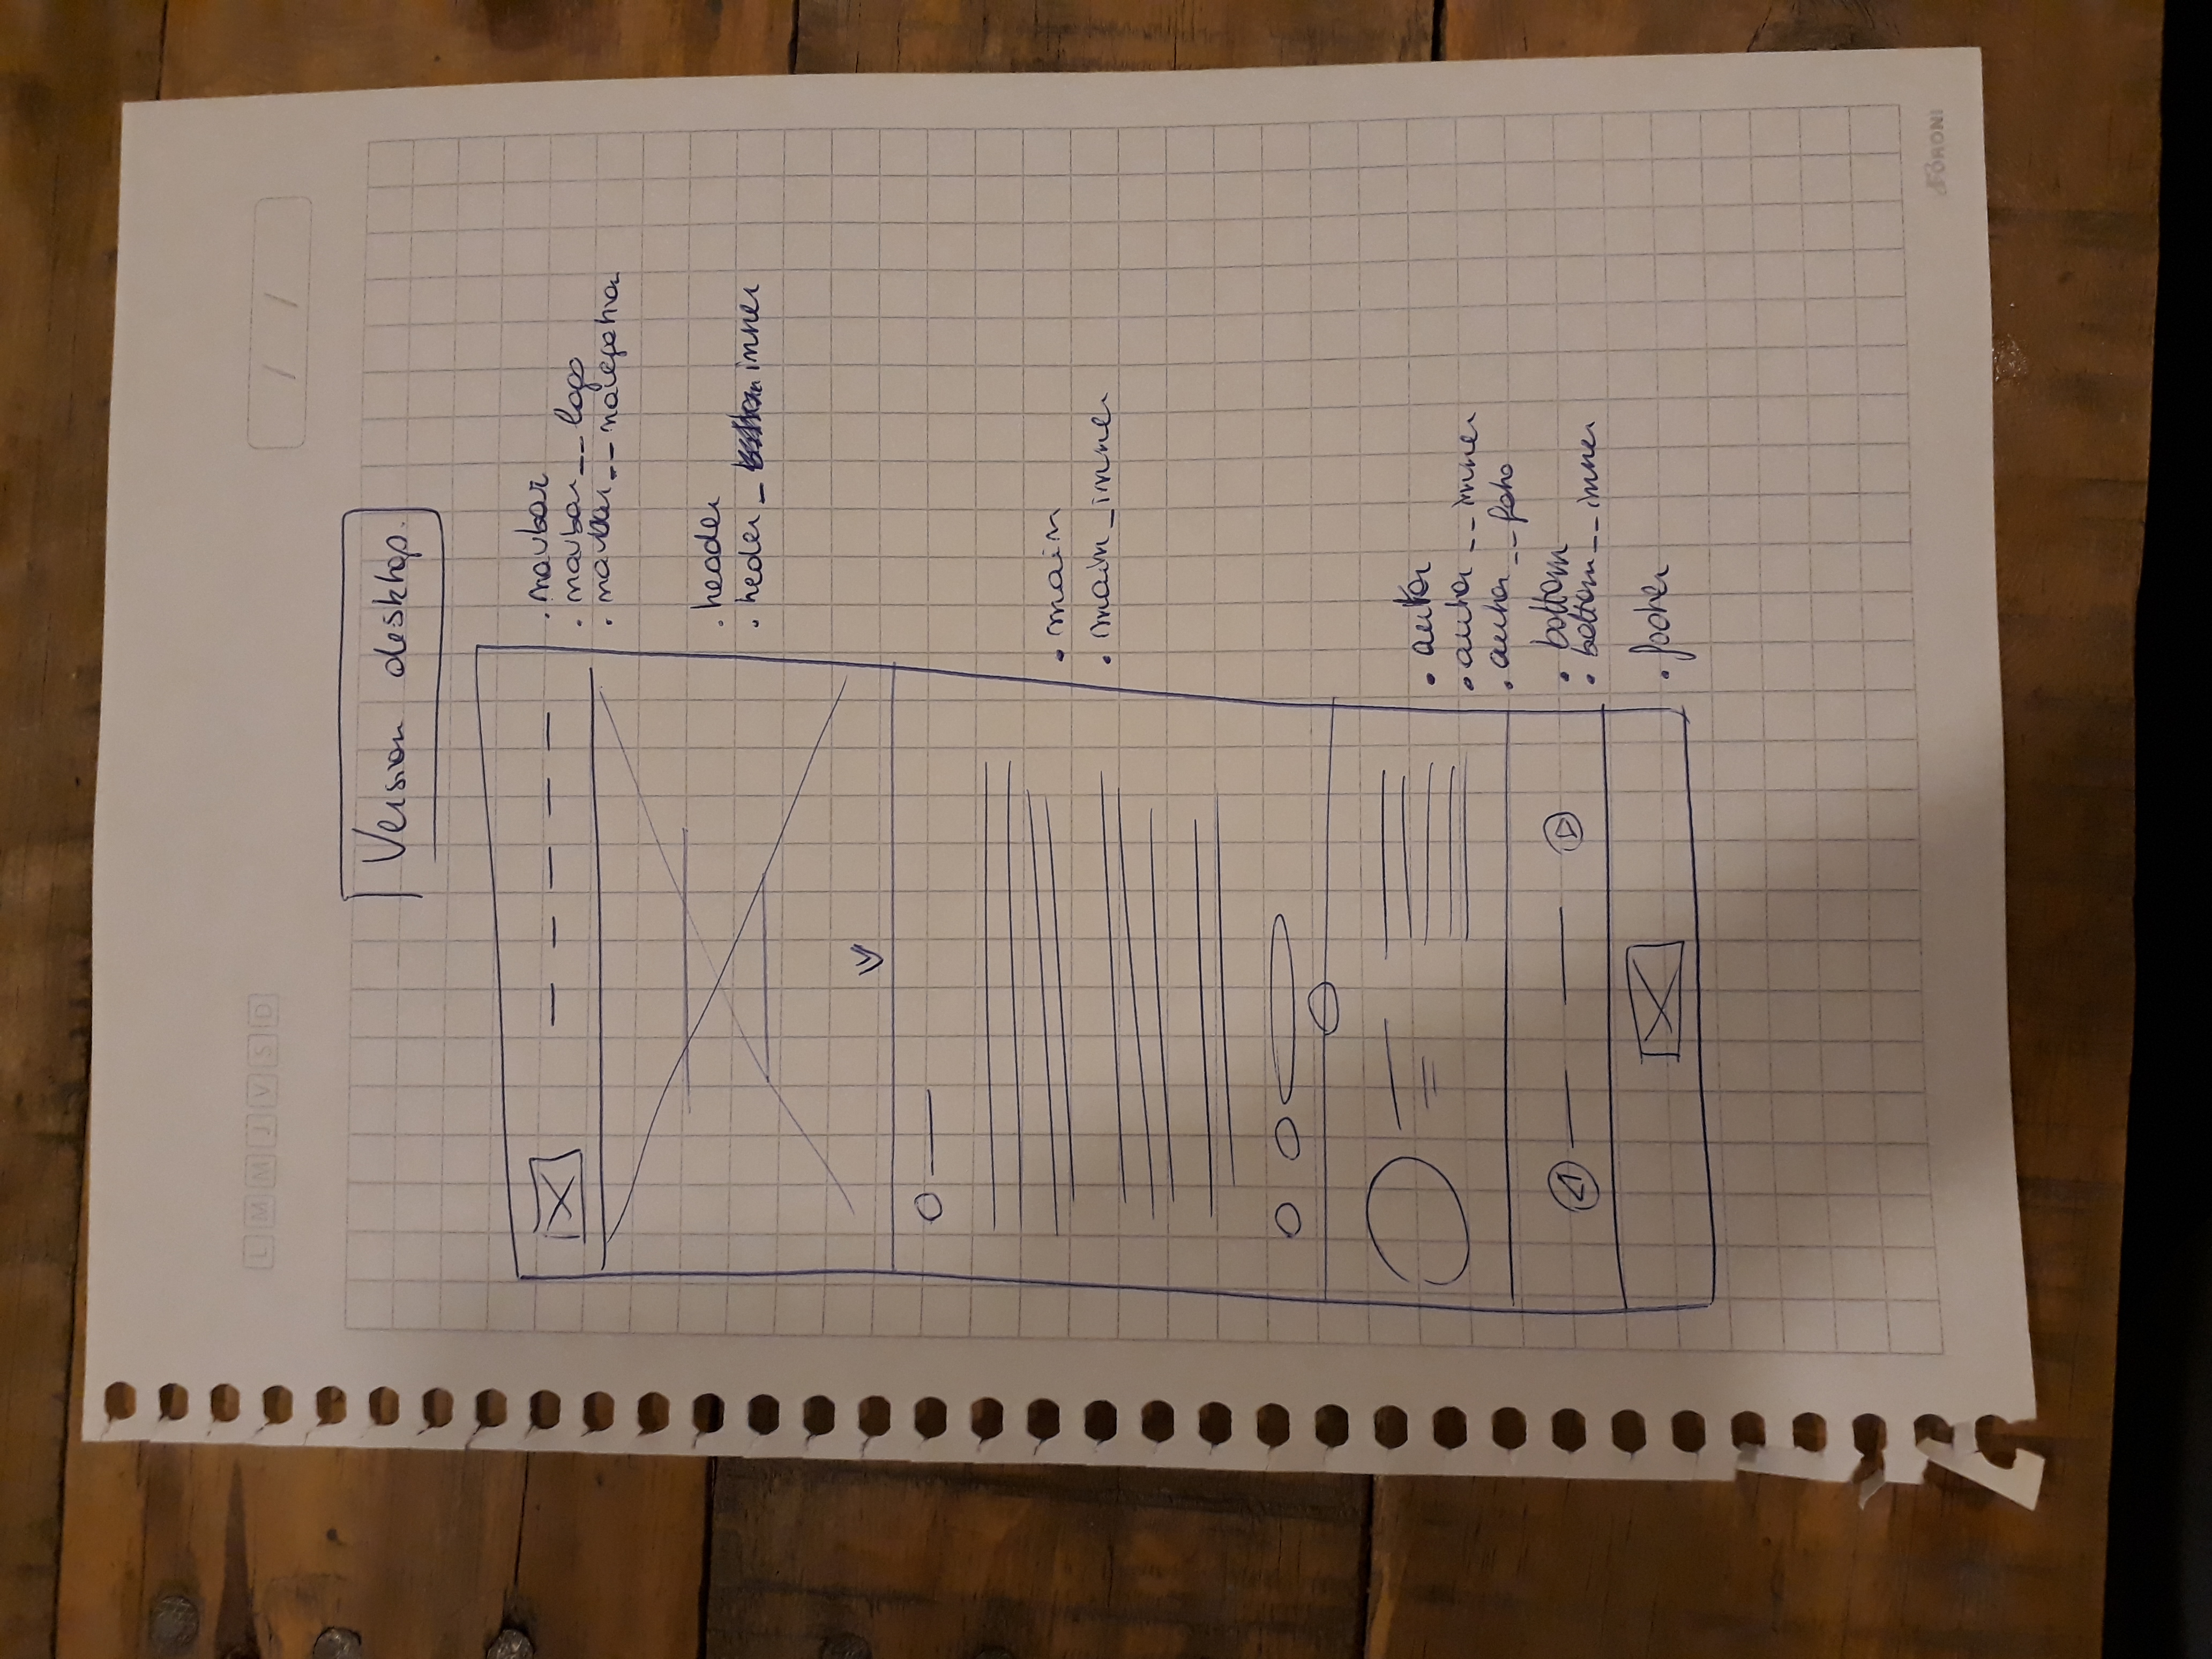 L M M J V S D
/ /
Version desktop.
. navbar
. navbar__logo
. navbar__navegation
. header
. heder_inner
. main
. main_inner
. autor
. autor__inner
. autor__foto
. bottom
. bottom__inner
. footer
FORONI